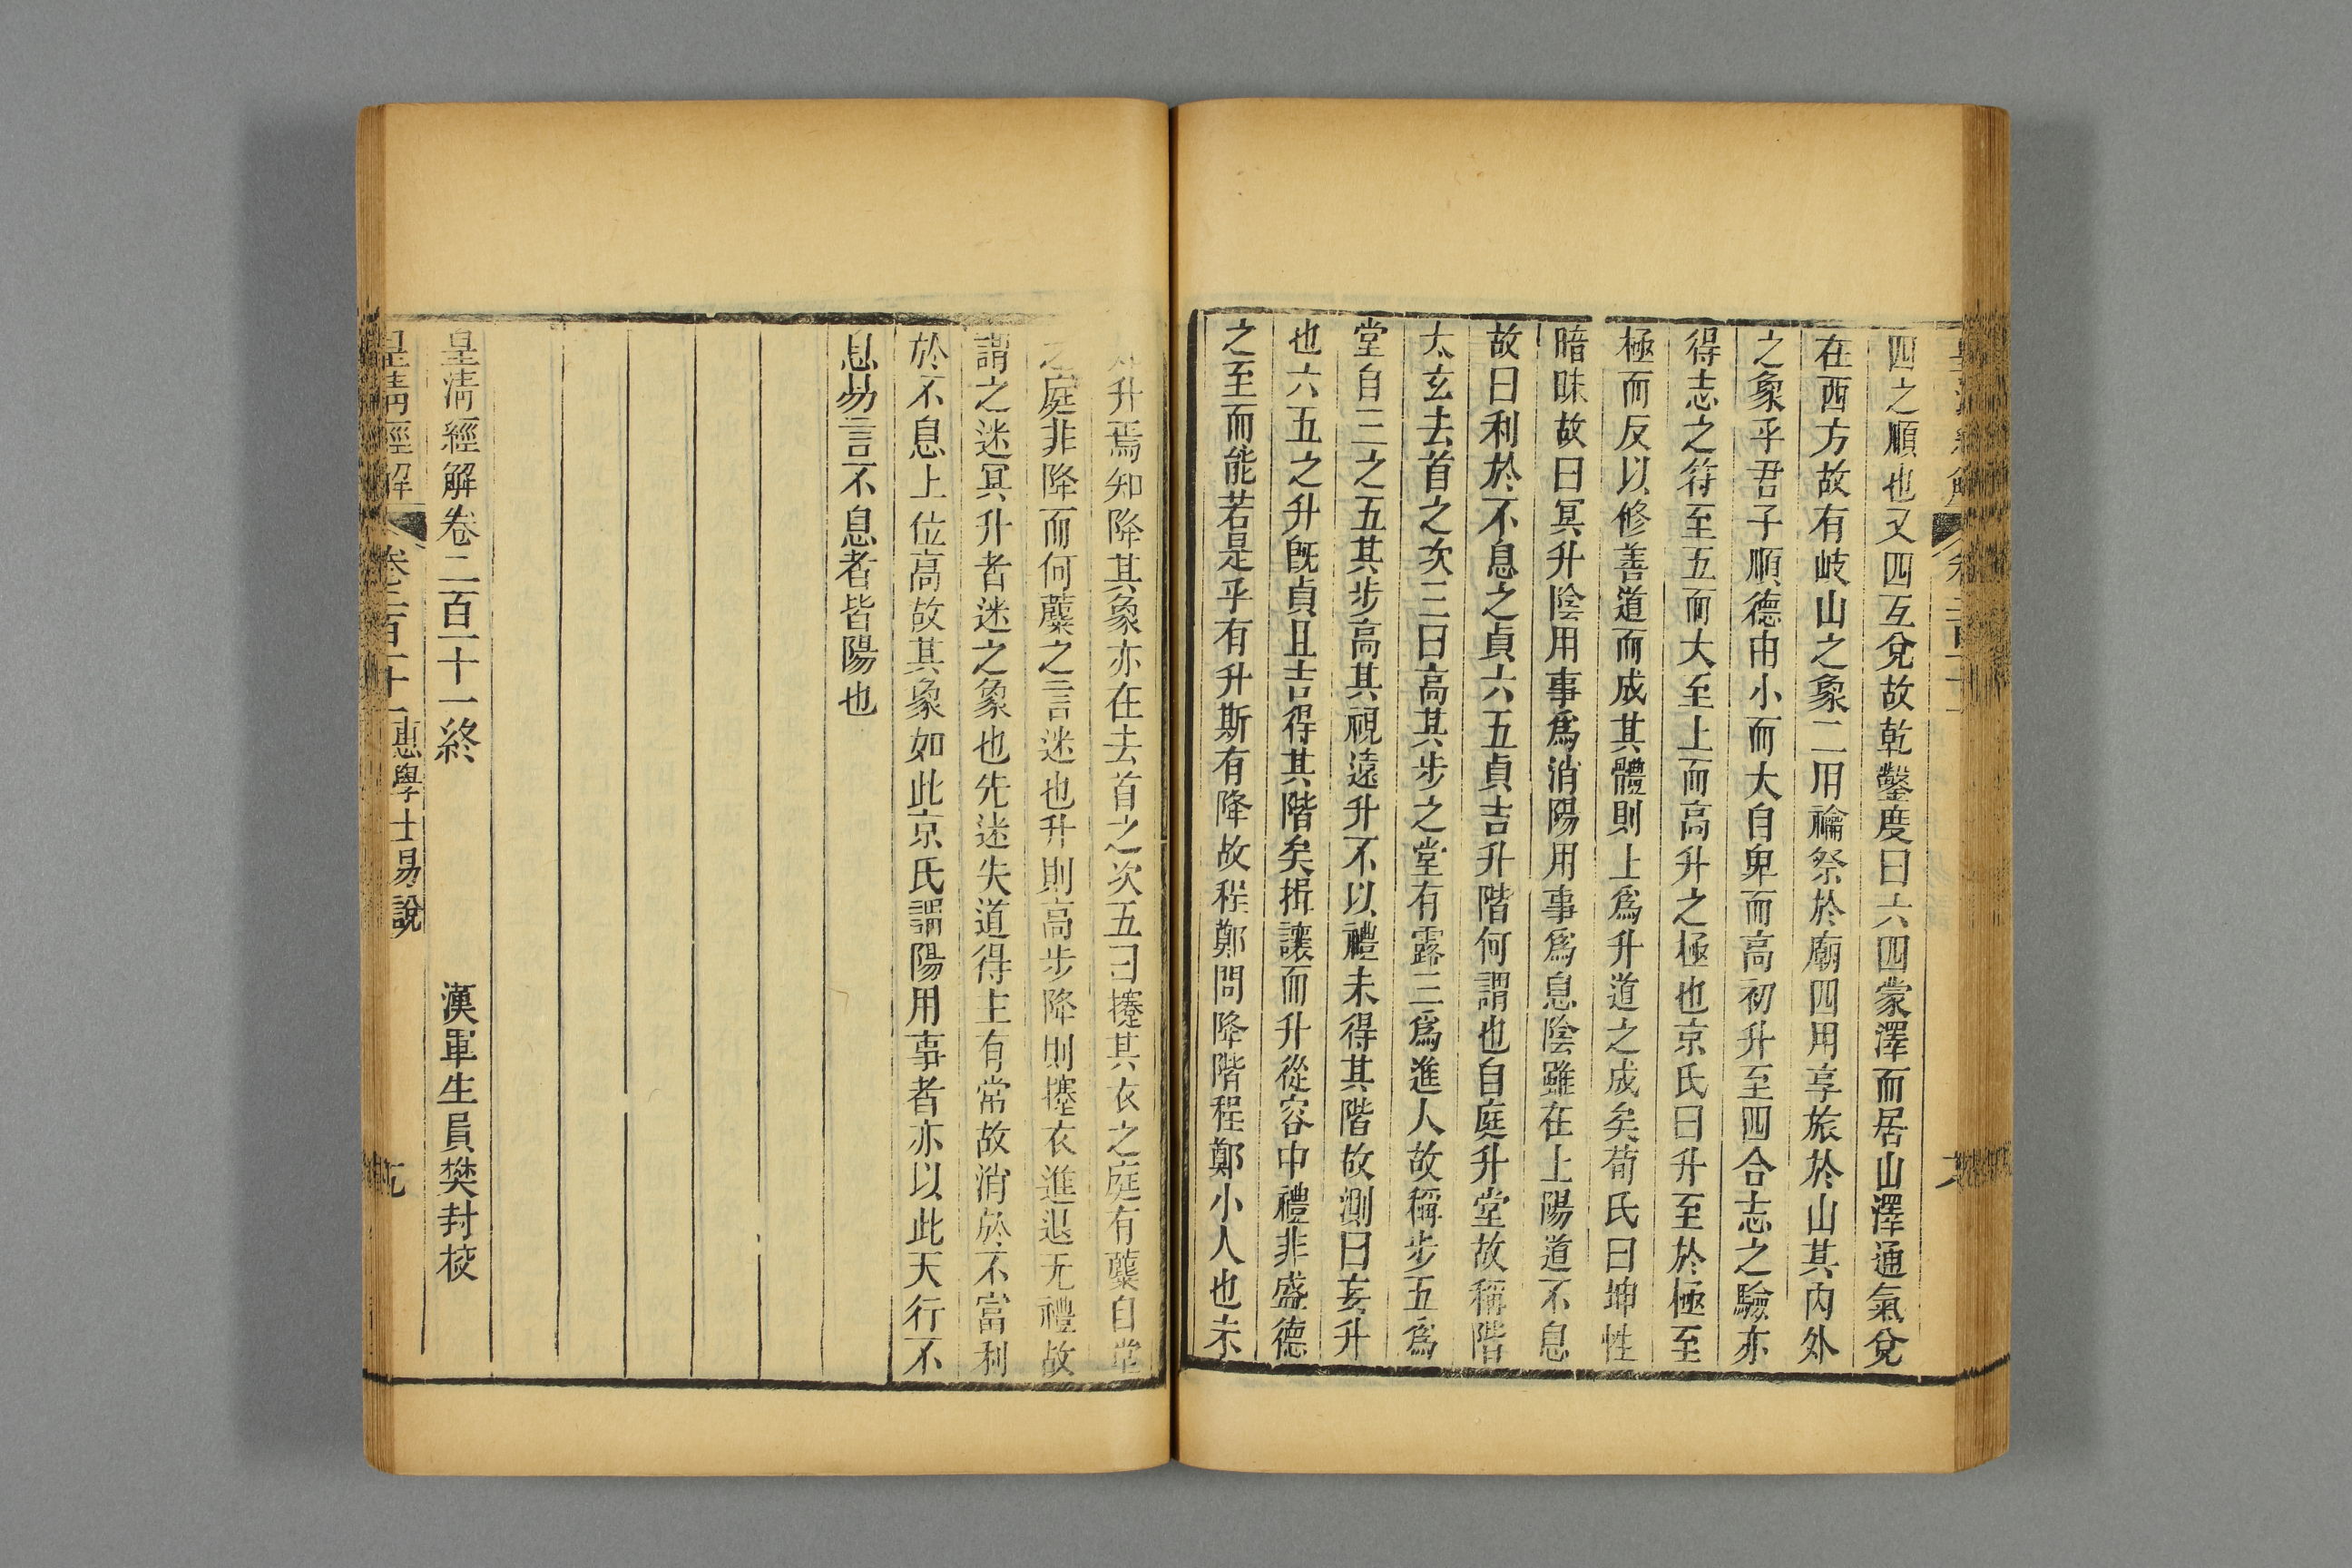 四之順也又四互兌故乾鑿度曰六四蒙澤而居山澤通氣兌
在西方故有岐山之象二用禴祭於廟四用享旅於山其內外
之象乎君子順德由小而大自卑而高初升至四合志之驗亦
得志之符至五而大至上而高升之極也京氏曰升至於極至
極而反以修善道而成其體則上爲升道之成矣荀氏曰坤性
暗昧故曰冥升陰用事爲消陽用事爲息陰雖在上陽道不息
故曰利於不息之貞六五貞吉升階何謂也自庭升堂故稱階
太玄去首之次三曰高其步之堂有露三爲進人故稱步五爲
堂自三之五其步高其視遠升不以禮未得其階故測曰妄升
也六五之升旣貞且吉得其階矣揖讓而升從容中禮非盛德
之至而能若是乎有升斯有降故程鄭問降階程鄭小人也未
升焉知降其象亦在去首之次五曰攓其衣之庭有麋自常
之庭非降而何麋之言迷也升則高步降則攓衣進退无禮故
謂之迷冥升者迷之象也先迷失道得主有常故消於不富利
於不息上位高故其象如此京氏謂陽用事者亦以此天行不
息易言不息者皆陽也
皇淸經解卷二百一十一終
漢軍生員樊封校
皇淸經解
卷二百一十一
惠學士易說
九